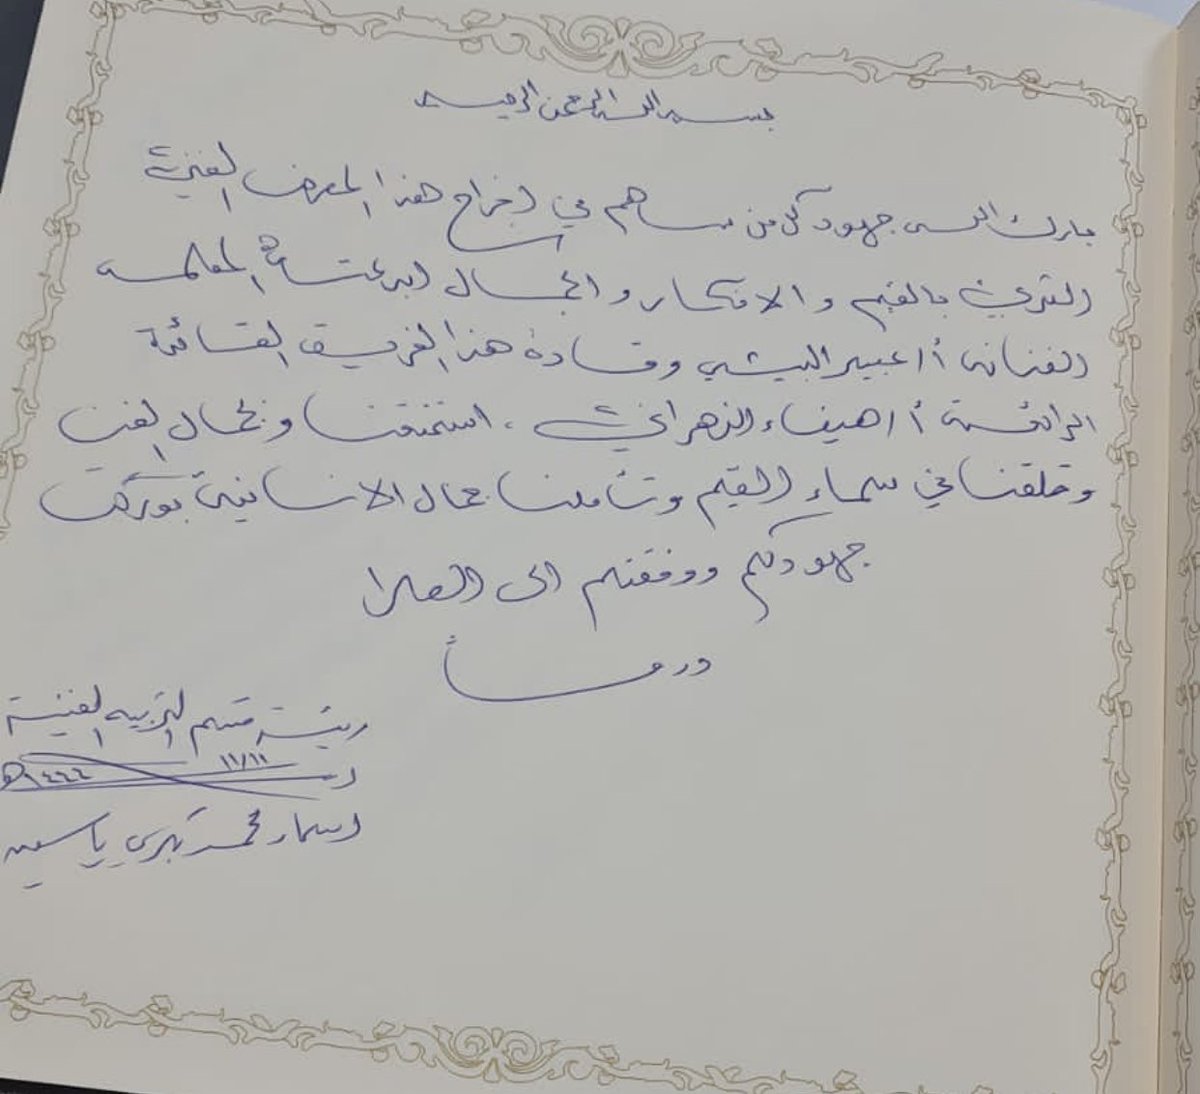 بسم الله الرحمن الرحيم
بارك الله جهود كل من ساهم في إخراج هذا المعرض الفني
الثري بالقيم والافكار والجمال ابدعت المعلمه
الفنانه أ/ عبير البيشي وقادة هذا الفريق القائدة
الرائعة أ/ هيفاء الزهراني . استمتعنا وبجمال الفن
وحلقنا في سماء القيم وتأملنا جمال الانسانية بوركت
جهودكم ووفقتم الى العلا
ودمتم
رئيسة قسم التربيه الفنية
١١/١١
١٤٤٤هـ
اسماء محمد ياسين